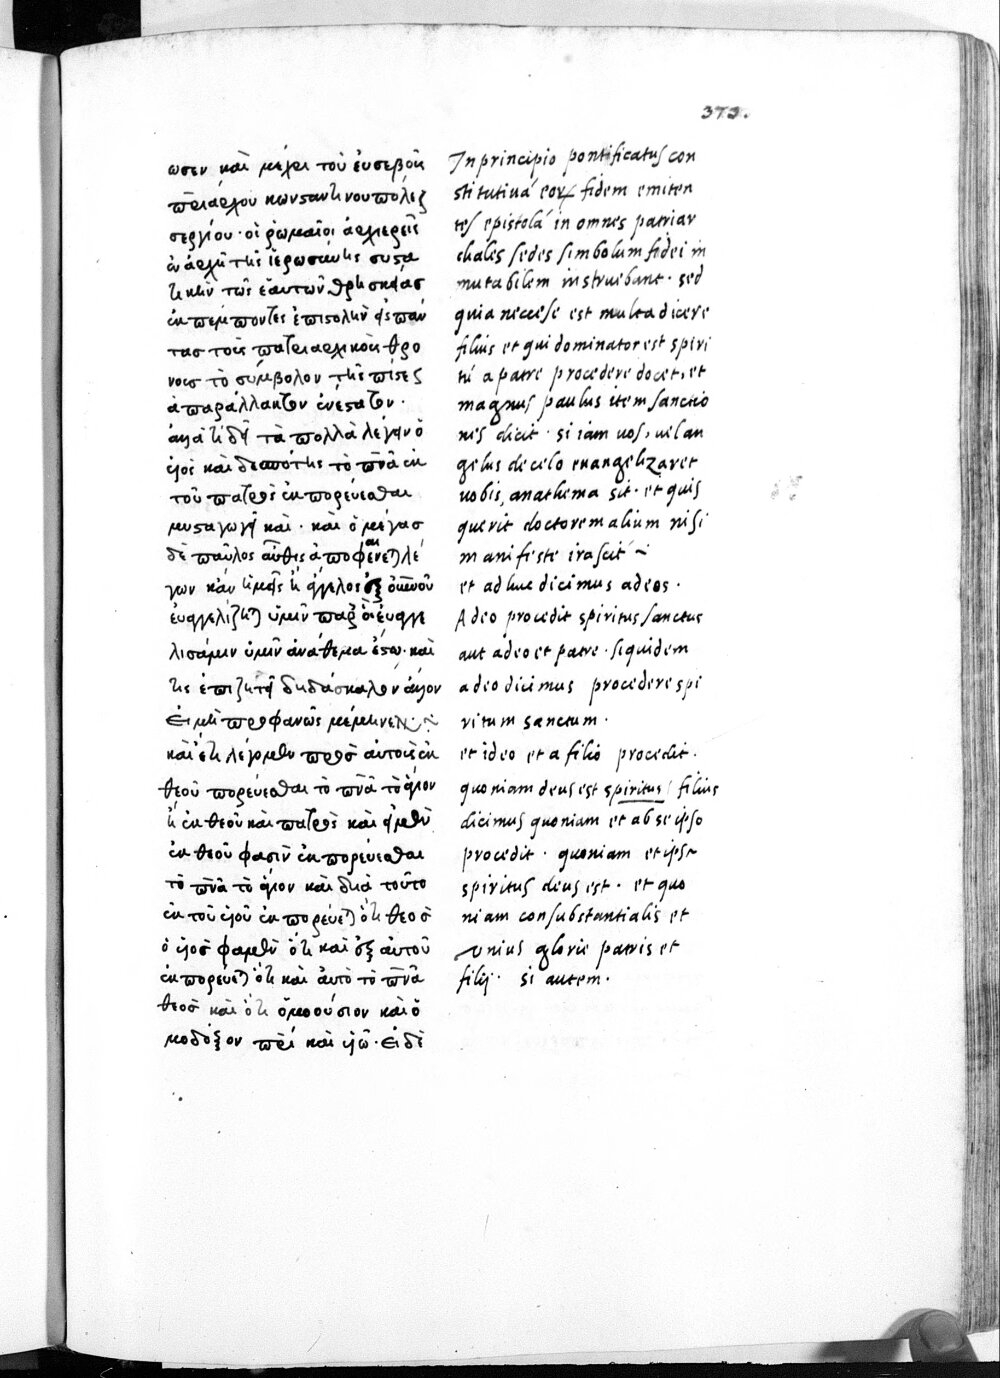 373.
ωσεν καὶ μέχρι τοῦ ἐυσεβοῦς
πριάρχου κωνσαντινουπόλεως
σεργίου· οἱ ῥωμαῖοι ἀρχιερεῖς
ἐν ἀρχῆ τῆς ἱερωσύνης συστα
τικὴν τῶς ἑαυτῶν θρησκείας
ἐκπέμποντες ἐπιστολὴν εἰς πάν
τασ τοὺς πατριαρχικοὺς θρό
νους τὸ σύμβολον τῆς πίστεως
ἀπαράλλακτον ἐνέσατον·
τὰ πολλὰ λέγειν ὁ
υἱὸς καὶ δεσπότης τὸ πνᾶ ἐκ
τοῦ πατρὸς ἐκπορέυεσθαι
μυσαγωγεῖ καὶ· καὶ ὁ μέγασ
δὲ παῦλος αὖθις ἀποφαίνεται λέ
γων κἂν ἡμεῖς ἢ ἄγγελος ἐξ οὐνοῦ
ἐυαγγελίζηται ὑμῖν παρ' ὃ ἐυηγγε
λισάμην ὑμῖν ἀνάθεμα ἔστω· καὶ
τίς ἐπιζητεῖ διδάσκαλον ἄλλον
εἰ μὴ προφανῶς μέμηνεν·~
καὶ ἔτι λέγομεν πρὸσ αὐτοὺς ἐκ
θεοῦ πορέυεσθαι τὸ πνᾶ τὸ ἅγιον
ἢ ἐκ θεοῦ καὶ πατρὸς καὶ εἰ μὲν
ἐκ θεοῦ φασὶν ἐκπορέυεσθαι
τὸ πνᾶ τὸ ἅγιον καὶ διὰ τοῦτο
ἐκ τοῦ υἱοῦ ἐκπορέυεται ὅτι θεοσ
ὁ υἱὸσ φαμὲν ὅτι καὶ ἐξ αὐτοῦ
ἐκπορέυεται ὅτι καὶ ἀυτὸ τὸ πνᾶ
θεοσ καὶ ὅτι ὁμοούσιον καὶ ὁ
μοδόξον πρὶ καὶ υἱῶ· εἰ δὲ
In principio pontificatus con
stitutiuá eorꝝ fidem emiten
tes epistolá in omnes patriar
chales sedes simbolum fidei in
mutabilem instruebant· sed
quia neccese est multa dicere
filius et qui dominator est spiri
tú a patre procedere docet, et
magnus paulus item sanctio
nis dicit· si iam uos, uel an
gelus de celo euangelizaret
uobis, anathema sit· et quis
querit doctorem alium nisi
manifeste irascit́ ~
et adhuc dicimus adeos·
A deo procedit spiritus sanctus
aut a deo et patre· siquidem
a deo dicimus procedere spi
ritum sanctum·
et ideo et a filio procedit·
quoniam deus est spiritus/ filius
dicimus quoniam et ab se ipso
procedit· quoniam et ipse
spiritus deus est· et quo
niam consubstantialis et
vnius glorie patris et
filij· si autem·